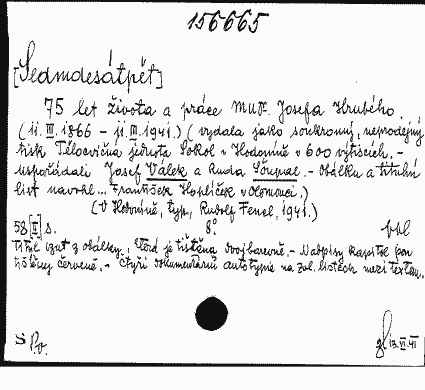 156665
[Sedmdesátpět]
75 let života a práce MUDr. Josefa Hrubého...
(11.III.1866 – 11.III.1941.) (Vydala jako soukromý, neprodejný
tisk Tělocvičná jednota Sokol v Hodoníně v 600 výtiscích. –
Uspořádali Josef Válek a Ruda Soupal. – Obálku a titulní
list navrhl... František Hoplíček v Olomouci.)
(V Hodoníně, typ. Rudolf Fencl, 1941.)
58 [II] s. 8°
Titul vzat z obálky, která je tištěna dvojbarevně. – Nadpisy kapitol jsou
tištěny červeně. – Čtyři dokumentární autotypie na zvl. listech mezi textem.
S Pv. 13.VI.41